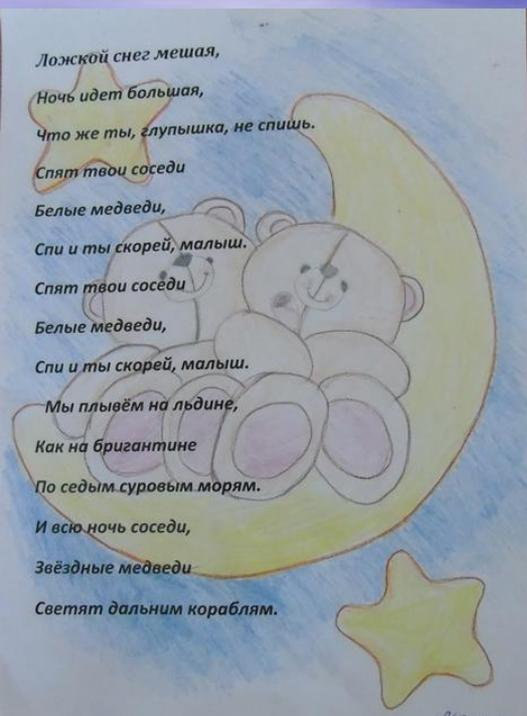 Ложкой снег мешая,
Ночь идет большая,
Что же ты, глупышка, не спишь.
Спят твои соседи
Белые медведи,
Спи и ты скорей, малыш.
Спят твои соседи
Белые медведи,
Спи и ты скорей, малыш.
Мы плывём на льдине,
Как на бригантине
По седым суровым морям.
И всю ночь соседи,
Звёздные медведи
Светят дальним кораблям.